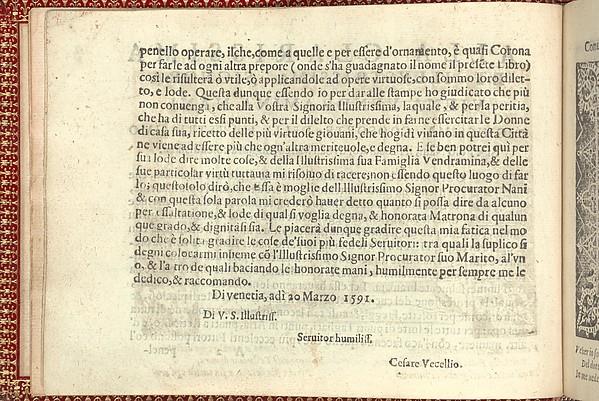 penello operare, ilche, come a quelle e per essere d'ornamento, è quasi Corona
per farle ad ogni altra prepore (onde s'ha guadagnato il nome il presẽte Libro)
così le risulterà ò vtile, ò applicandole ad opere virtuose, con sommo loro dilet-
to, e lode. Questa dunque essendo io per dar alle stampe hò giudicato che più
non conuenga, che alla Vostra Signoria Illustrissima, laquale, & per la peritia,
che ha di tutti essi punti, & per il diletto che prende in farne essercitar le Donne
di casa sua, ricetto delle più virtuose giouani, che hogidì viuano in questa Città
ne viene ad essere più che ogn'altra meriteuole, e degna. E se ben potrei quì per
sua lode dire molte cose, & della Illustrissima sua Famiglia Vendramina, & delle
sue particolar virtù tuttauia mi risoluo di tacere; non essendo questo luogo di far
lo; questo solo dirò, che essa è moglie dell'Illustrissimo Signor Procurator Nani
& con questa sola parola mi crederò hauer detto quanto si possa dire da alcuno
per essaltatione, & lode di qual si voglia degna, & honorata Matrona di qualun
que grado, & dignità si sia. Le piacerà dunque gradire questa mia fatica nel mo
do che è solita gradire le cose de'suoi più fedeli Seruitori: tra quali la suplico si
degni colocarmi insieme cõ l'Illustrissimo Signor Procurator suo Marito, al'vn
o, & l'altro de quali baciando le honorate mani, humilmente per sempre me le
dedico, & raccomando.
Di venetia, adì 20 Marzo 1591.
Di V. S. Illustriss.
Seruitor humiliss.
Cesare Vecellio.